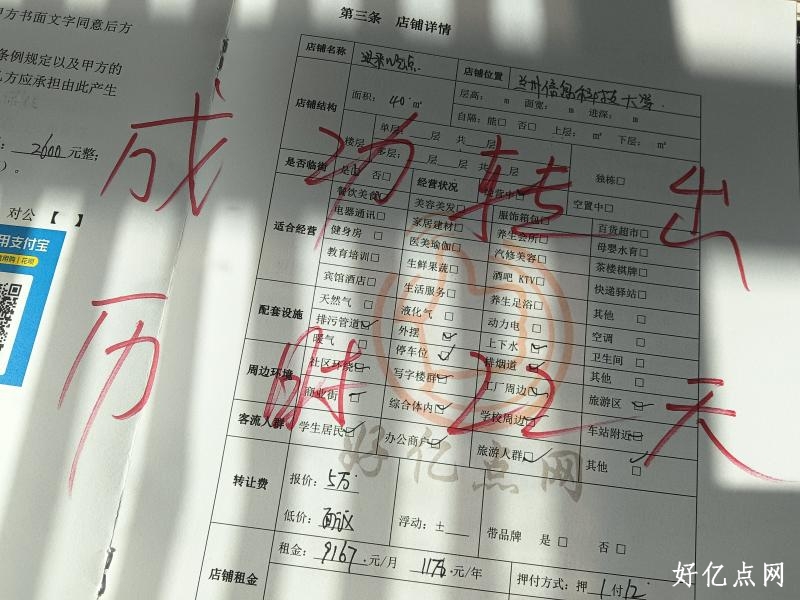 甲方书面文字同意后方
条例规定以及甲方的
乙方应承担由此产生
2600 元整;
)。
对公 【 】
用支付宝
信用购 | 花呗
第三条 店铺详情
店铺名称
店铺位置 兰州信息科技大学
店铺结构 面积: 40 ㎡ 层高: m 面宽: m 进深: m
自隔: 能□ 否□ 上层: ㎡ 下层: ㎡
楼层 单层: 层 共 层
多层: 层 共 层 独栋□
是否临街 是□ 否□ 经营状况 经营中□ 空置中□
适合经营 餐饮美食□ 美容美发□ 服饰箱包□ 百货超市□
电器通讯□ 家居建材□ 养生会所□ 母婴水育□
健身房□ 医美瑜伽□ 汽修美容□ 茶楼棋牌□
教育培训□ 生鲜果蔬□ 酒吧 KTV□ 快递驿站□
宾馆酒店□ 生活服务□ 养生足浴□ 其他□
配套设施 天然气□ 液化气□ 动力电□ 空调□
排污管道□ 外摆□ 上下水□ 卫生间□
暖气□ 停车位□ 排烟道□ 其他□
周边环境 社区环绕□ 写字楼群□ 工厂周边□ 旅游区□
商业街□ 综合体内□ 学校周边□ 车站附近□
客流人群 学生居民□ 办公商户□ 旅游人群□ 其他□
转让费 报价: 5万
低价: 面议 浮动: ±
带品牌 是□ 否□
店铺租金 租金: 9167 元/月 11万 元/年 押付方式: 押 1 付 12
成功转出
历时22天
好亿点网
好亿点网